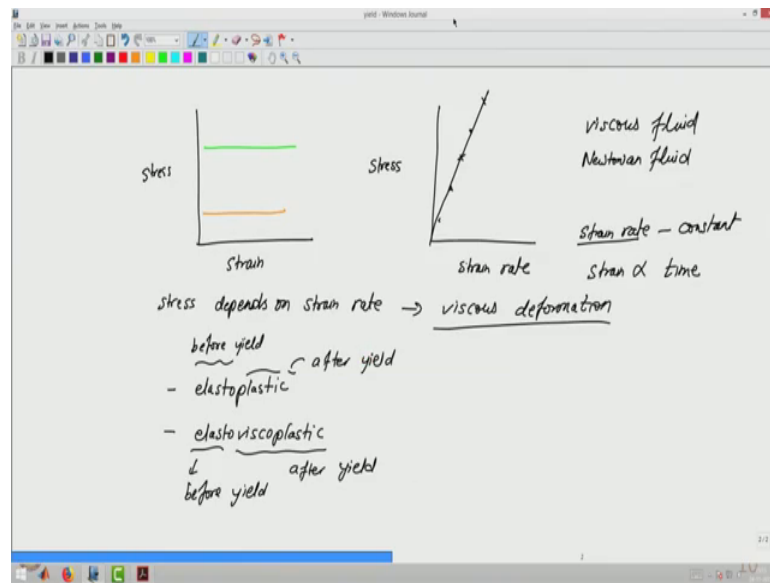 yield - Windows Journal
File Edit View Insert Actions Tools Help
Stress
Strain
Stress
Strain rate
viscous fluid
Newtonian fluid
Strain rate - constant
Strain α time
stress depends on strain rate → viscous deformation
before yield
after yield
- elastoplastic
- elastoviscoplastic
before yield
after yield
2/2